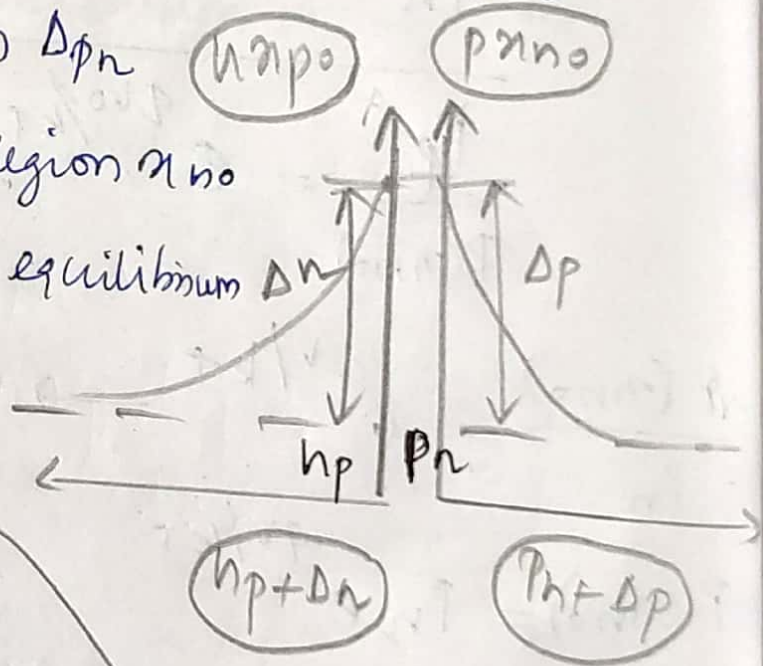 Δpn
nxpo pxno
region xno
equilibrium Δn Δp
np Pn
np+Δn Pn+Δp